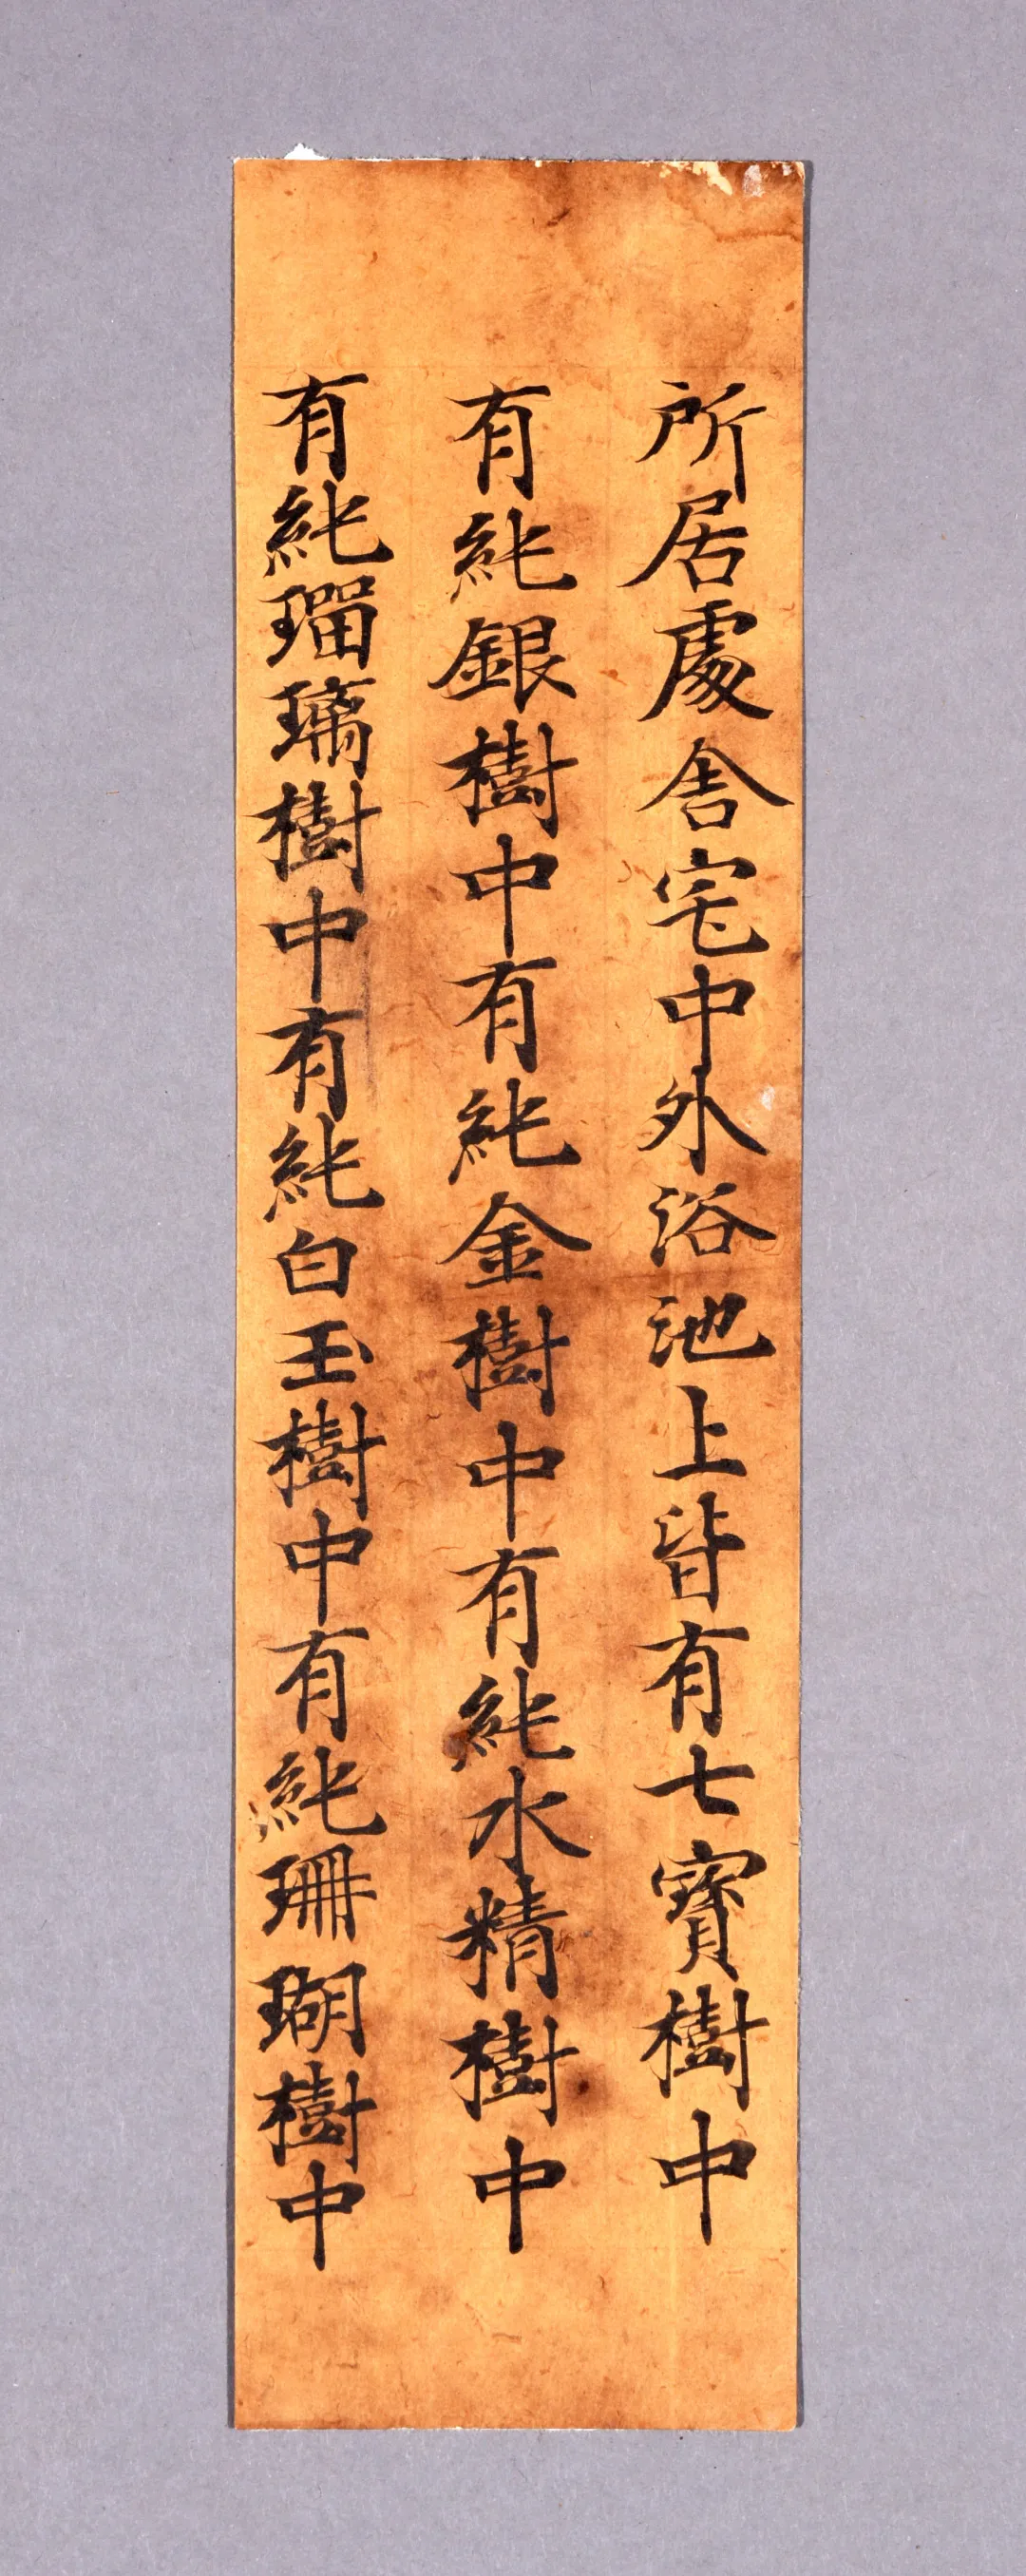 所居處舍宅中外浴池上皆有七寶樹中
有純銀樹中有純金樹中有純水精樹中
有純瑠璃樹中有純白玉樹中有純珊瑚樹中